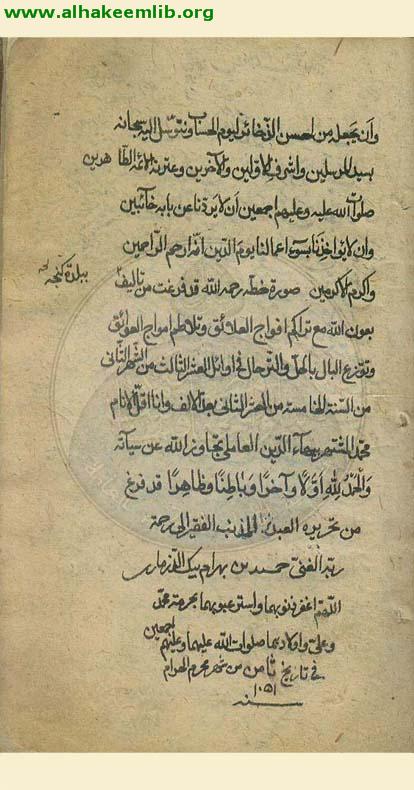 www.alhakeemlib.org
وان يجعله من احسن الذخائر ليوم الحساب ونتوسل اليه سبحانه
بسيد المرسلين واشرف الاولين والآخرين وعترته الائمة الطاهرين
صلوات الله عليه وعليهم اجمعين ان لا يردنا عن بابه خائبين
وان لا يؤاخذنا بسوء اعمالنا يوم الدين انه ارحم الراحمين
واكرم الاكرمين صورة خطه رحمه الله قد فرغت من تاليفه
ببلدة كنجه
بعون الله مع تراكم افواج العلائق وتلاطم امواج العوائق
وتوزع البال بالحل والترحال في اوائل العشر الثالث من الشهر الثاني
من السنة الخامسة من العشر الثاني بعد الالف وانا اقل الانام
محمد المشتهر ببهآء الدين العاملي تجاوز الله عن سيآته
والحمد لله اولا وآخرا وباطنا وظاهرا قد فرغ
من تحريره العبد المذنب الفقير الى رحمة
ربه الغني بن بهرام بيك
اللهم اغفر ذنوبهما واستر عيوبهما بحرمة محمد
وعلي واولادهما صلوات الله عليهما وعليهم اجمعين
في تاريخ ثامن من شهر محرم الحرام
سنه ١٠٥١